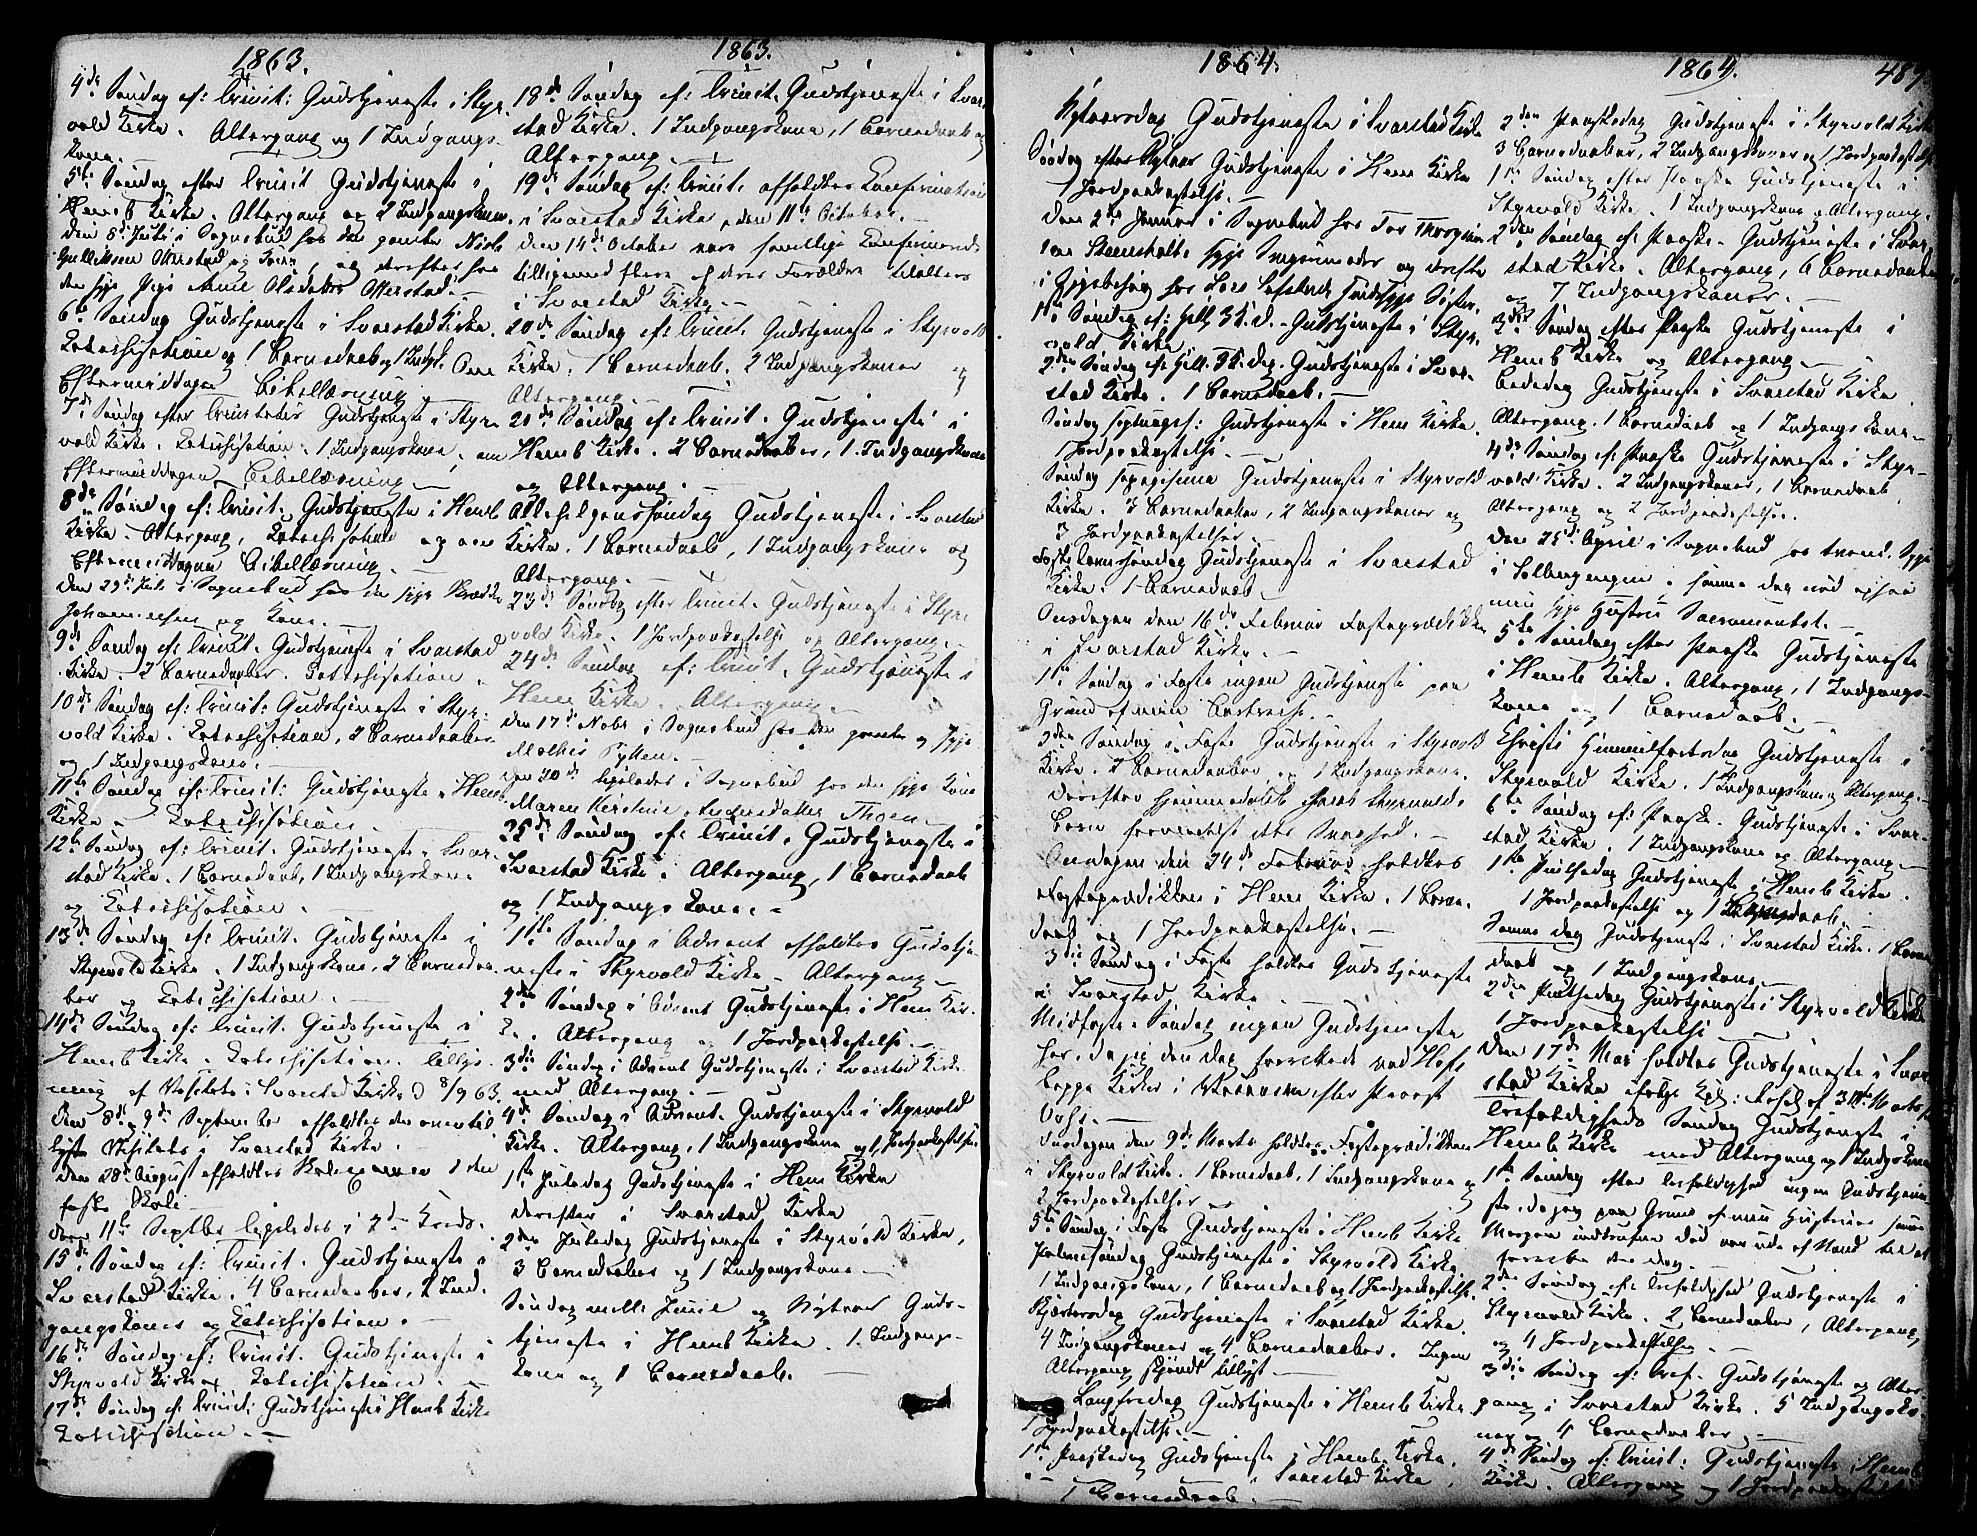 1863.
4de Søndag ef: Trinit: Gudstjeneste i Styr-
vold Kirke. Altergang og 1 Indgangs-
kone.
5te Søndag efter Trinit Gudstjeneste i
Hems Kirke. Altergang og 2 Indgangskoner.
den 8de Juli i Sognebud hos den gamle Niels
Gulliksen Ollerstad og Kone, og derefter hos
den syge Pige Anne Olsdatter Ollerstad.
6te Søndag Gudstjeneste i Svarstad Kirke.
Katechisation og 1 Barnedaab og 1 Indgk. Om
Eftermiddagen Bibellæsning
7de Søndag efter Trinitatis Gudstjeneste i Styr-
vold Kirke. Katechisation. 1 Indgangskone, om
Eftermiddagen Bibellæsning
8de Søndag ef: Trinit: Gudstjeneste i Hems
Kirke. Altergang, Katechisation og om
Eftermiddagen Bibellæsning.
den 29de Juli i Sognebud hos den syge
Johannesen og Kone.
9de Søndag ef: Trinit. Gudstjeneste i Svarstad
Kirke. 2 Barnedaaber. Katechisation.
10de Søndag ef: Trinit: Gudstjeneste i Styr-
vold Kirke. Katechisation, 2 Barnedaaber
og 1 Indgangskone.
11te Søndag ef: Trinit: Gudstjeneste i Hems
Kirke. Katechisation
12te Søndag ef: Trinit. Gudstjeneste i Svar-
stad Kirke. 1 Barnedaab, 1 Indgangskone
og Katechisation.
13de Søndag ef: Trinit. Gudstjeneste i
Styrvold Kirke. 1 Indgangskone, 2 Barnedaa-
ber og Katechisation.
14de Søndag ef: Trinit. Gudstjeneste i
Hems Kirke. Katechisation. Tillys-
ning af Visitats i Svarstad Kirke d 8/9 63.
Den 8de, 9de September afholdtes den ovenfor til-
lyste Visitats i Svarstad Kirke.
den 28de August afholdtes Skoleexamen i den
faste Skole
den 11te Septbr ligeledes i 2den Kreds.
15de Søndag ef: Trinit. Gudstjeneste i
Svarstad Kirke. 4 Barnedaaber, 2 Ind-
gangskoner og Katechisation.
16de Søndag ef: Trinit. Gudstjeneste i
Styrvold Kirke og Katechisation.
17de Søndag ef: Trinit: Gudstjeneste i Hems Kirke
Katechisation.
1863.
18de Søndag ef: Trinit. Gudstjeneste i Svar-
stad Kirke. 1 Indgangskone, 1 Barnedaab og
Altergang.
19de Søndag ef: Trinit. afholdtes Confirmation
i Svarstad Kirke, den 11te October.
den 14de October vare samtlige Confirmander
tilligemed flere af deres Forældre til Alters
i Svarstad Kirke.
20de Søndag ef: Trinit. Gudstjeneste i Styrvold
Kirke. 1 Barnedaab. 2 Indgangskoner og
Altergang.
21de Søndag ef: Trinit. Gudstjeneste i
Hems Kirke. 2 Barnedaaber, 1 Indgangskone
og Altergang.
Allehelgenssøndag Gudstjeneste i Svarstad
Kirke. 1 Barnedaab, 1 Indgangskone og
Altergang.
23de Søndag efter Trinit. Gudstjeneste i Styr-
vold Kirke. 1 Jordpaakastelse og Altergang.
24de Søndag ef: Trinit. Gudstjeneste i
Hems Kirke. Altergang.
den 17de Novbr i Sognebud hos den gamle og syge
Mathis
den 20de ligeledes i Sognebud hos den syge Kone
Maren Kirstine Andersdatter Thoen
25de Søndag ef: Trinit. Gudstjeneste i
Svarstad Kirke. Altergang, 1 Barnedaab
og 1 Indgangskone.
1ste Søndag i Advent afholdtes Gudstje-
neste i Styrvold Kirke. Altergang
2den Søndag i Advent Gudstjeneste i Hems Kir-
ke. Altergang og 1 Jordpaakastelse.
3die Søndag i Advent Gudstjeneste i Svarstad Kirke
med Altergang.
4de Søndag i Advent. Gudstjeneste i Styrvold
Kirke. Altergang, 1 Indgangskone og 1 Jordpaakastelse.
1ste Juledag Gudstjeneste i Hems Kirke
derefter i Svarstad Kirke
2den Juledag Gudstjeneste i Styrvold Kirke,
3 Barnedaaber og 1 Indgangskone
Søndag mell: Juul og Nytaar Guds-
tjeneste i Hems Kirke. 1 Indgangs-
kone og 1 Barnedaab.
1864.
Nytaarsdag Gudstjeneste i Svarstad Kirke
Søndag efter Nytaar Gudstjeneste i Hems Kirke
1 Jordpaakastelse.
den 2den Januar i Sognebud hos Tor
syge Svigermoder og derefter
1ste Søndag ef: Hell: 3 K. D. Gudstjeneste i Styr-
vold Kirke
2den Søndag ef: Hell. 3 K. dag. Gudstjeneste i Svar-
stad Kirke. 1 Barnedaab.
Søndag septuages: Gudstjeneste i Hems Kirke.
1 Jordpaakastelse.
Søndag sexagesima Gudstjeneste i Styrvold
Kirke. 5 Barnedaaber, 2 Indgangskoner og
3 Jordpaakastelser.
Fastelavnssøndag Gudstjeneste i Svarstad
Kirke. 1 Barnedaab
Onsdagen den 16de Februar Fasteprædiken
i Svarstad Kirke.
1ste Søndag i Faste ingen Gudstjeneste paa
Grund af min Bortreise.
2den Søndag i Faste Gudstjeneste i Styrvold
Kirke. 2 Barnedaaber og 1 Indgangskone.
derefter hjemmedøbt Jacob Styrvolds
Barn
Onsdagen den 24de Februar holdtes
Fasteprædiken i Hems Kirke. 1 Barne-
daab og 1 Jordpaakastelse.
3die Søndag i Faste holdtes Gudstjeneste
i Svarstad Kirke
Midfaste Søndag ingen Gudstjeneste
her, da jeg den Dag forrettede ved Hof
Kirke i
Onsdagen den 9de Marts holdtes Fasteprædiken
i Styrvold Kirke. 1 Barnedaab, 1 Indgangskone og
2 Jordpaakastelser
5te Søndag i Faste Gudstjeneste i Hems Kirke
Palmesøndag Gudstjeneste i Styrvold Kirke
1 Indgangskone, 1 Barnedaab og 1 Jordpaakastelse.
Skjærtorsdag Gudstjeneste i Svarstad Kirke.
4 Indgangskoner og 4 Barnedaaber. Ingen
Altergang skjøndt tillyst.
Langfredag Gudstjeneste i Hems Kirke.
1 Jordpaakastelse.
1ste Paaskedag Gudstjeneste i Hems Kirke.
i Svarstad Kirke.
1 Barnedaab.
1864. 487
2den Paaskedag Gudstjeneste i Styrvold Kirke
3 Barnedaaber, 2 Indgangskoner og 1 Jordpaakastelse
1ste Søndag efter Paaske Gudstjeneste i
Styrvold Kirke. 1 Indgangskone og Altergang.
2den Søndag ef: Paaske. Gudstjeneste i Svar-
stad Kirke. Altergang, 6 Barnedaaber
og 7 Indgangskoner.
3die Søndag efter Paaske Gudstjeneste i
Hems Kirke og Altergang
Bededag Gudstjeneste i Svarstad Kirke
Altergang. 1 Barnedaab og 1 Indgangskone
4de Søndag ef: Paaske Gudstjeneste i Styr-
vold Kirke. 2 Indgangskoner, 1 Barnedaab
Altergang og 2 Jordpaakastelser.
den 25de April i Sognebud
samme dag nød ogsaa
min syge Hustru Sacramentet.
5te Søndag efter Paaske Gudstjeneste
i Hems Kirke. Altergang, 1 Indgangs-
kone og 1 Barnedaab.
Christi Himmelfartsdag Gudstjeneste i
Styrvold Kirke. 1 Indgangskone og Altergang.
6te Søndag ef: Paaske. Gudstjeneste i Svar-
stad Kirke. 1 Indgangskone og Altergang
1ste Pintsedag Gudstjeneste i Hems Kirke.
1 Jordpaakastelse og 1 Barnedaab.
Samme dag Gudstjeneste i Svarstad Kirke. 1 Barne-
daab og 1 Indgangskone
2den Pintsedag Gudstjeneste i Styrvold Kirke
1 Jordpaakastelse
Den 17de Mai holdtes Gudstjeneste i Svar-
stad Kirke ifølge Kgl: Resol. af
Trefoldigheds Søndag Gudstjeneste i
Hems Kirke med Altergang og 1 Indgskone
1ste Søndag efter Trefoldighed ingen Gudstjene-
ste, da jeg paa Grund af min Hustrues samme
Morgen indtrufne Død var ude af Stand til at
forrette den dag.
2den Søndag ef: Trefoldighed Gudstjeneste i
Styrvold Kirke. 2 Barnedaaber, Altergang
og 4 Jordpaakastelser
3die Søndag ef: Tref. Gudstjeneste og Alter-
gang i Svarstad Kirke. 5 Indgangsko-
ner og 4 Barnedaaber
4de Søndag ef: Trinit: Gudstjeneste i Hems
Kirke. Altergang og 1 Jordpaakastelse